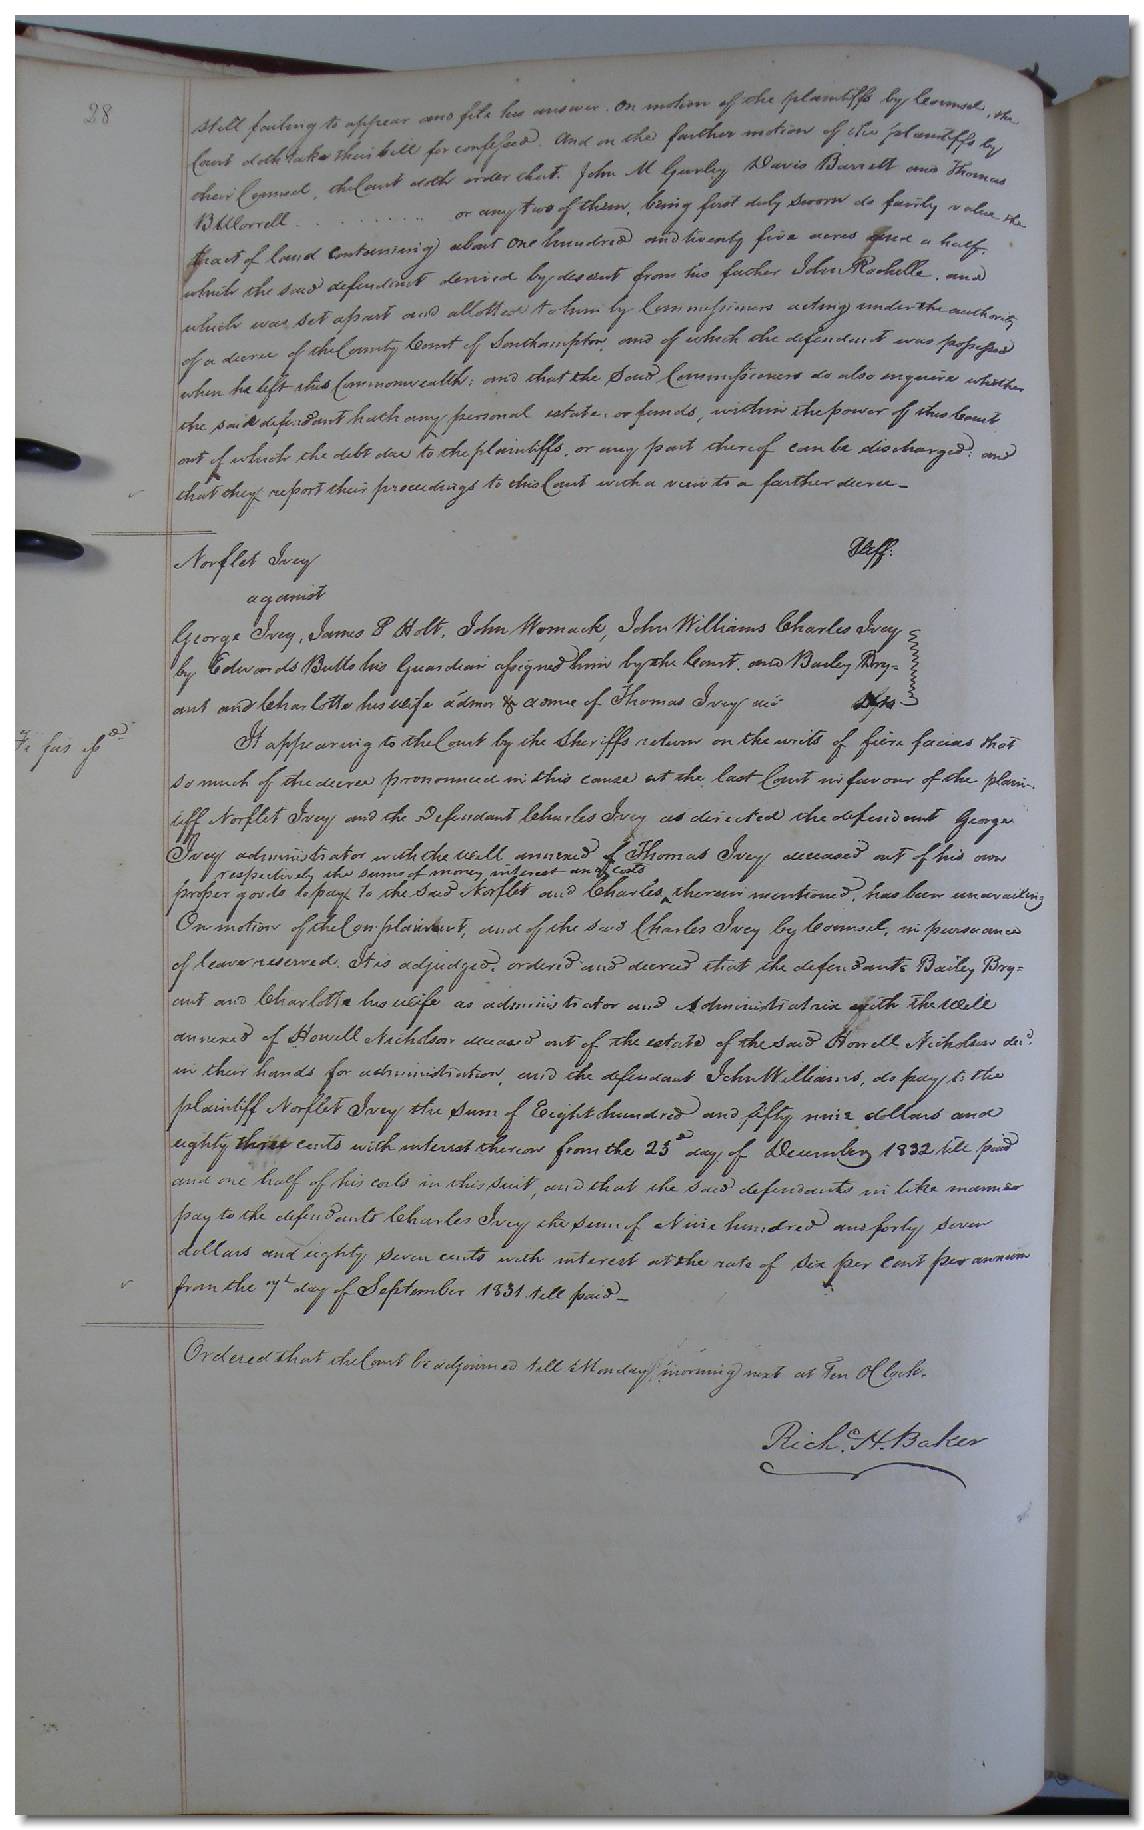 28
still failing to appear and file his answer. On motion of the plaintiffs by Counsel, the
Court doth take their bill for confessed. And on the farther motion of the plaintiffs by
their Counsel, the Court doth order that John M Gurley Davis Barrett and Thomas
B Worrell . . . . . . . . or any two of them, being first duly sworn do fairly value the
tract of land containing about one hundred and twenty five acres and a half.
which the said defendant derived by descent from his father John Rochelle, and
which was set apart and allotted to him by Commissioners acting under the authority
of a decree of the County Court of Southampton, and of which the defendant was possessed
when he left this Commonwealth; and that the said Commissioners do also enquire whether
the said defendant hath any personal estate, or funds, within the power of this Court
out of which the debt due to the plaintiffs, or any part thereof can be discharged: and
that they report their proceedings to this Court with a view to a farther decree_
Norflet Ivey Plff:
against
George Ivey, James P Holt, John Womack, John Williams Charles Ivey
by Edwards Butts his Guardian assigned him by the Court, and Bailey Bry=
ant and Charlotte his wife admor & admx of Thomas Ivey Defts
Fi fas issd
It appearing to the Court by the Sheriffs return on the writs of fiere facias that
so much of the decree pronounced in this cause at the last Court in favour of the plain-
tiff Norflet Ivey and the Defendant Charles Ivey as directed the defendant George
Ivey administrator with the will annexed of Thomas Ivey deceased out of his own
respectively the sums of money, interest and costs
proper goods to pay to the said Norflet and Charles ^ therein mentioned, has been unavailing
On motion of the Complainant, and of the said Charles Ivey by Counsel, in pursuance
of leave reserved. It is adjudged, ordered and decreed that the defendants Bailey Bry=
ant and Charlotte his wife as administrator and Administratrix with the Will
annexed of Howell Nicholson deceased out of the estate of the said Howell Nicholson decd.
in their hands for administration, and the defendant John Williams, do pay to the
plaintiff Norflet Ivey the sum of Eight hundred and fifty nine dollars and
eighty three cents with interest thereon from the 23d day of December 1832 till paid
and one half of his costs in this suit, and that the said defendants in like manner
pay to the defendants Charles Ivey the sum of Nine hundred and forty seven
dollars and eighty seven cents with interest at the rate of six per cent per annum
from the 7th day of September 1831 till paid_
Ordered that the Court be adjourned till Monday morning next at Ten O'Clock.
Richd. H. Baker